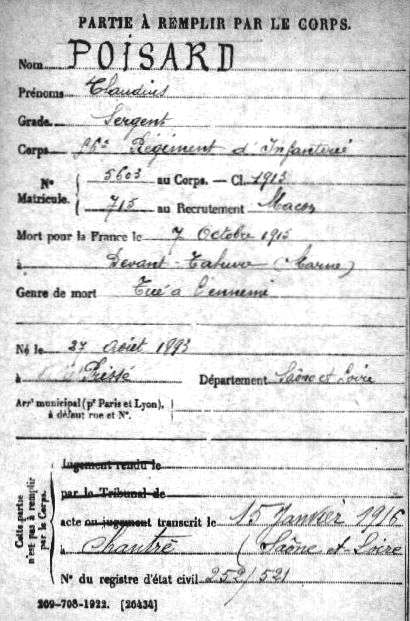 PARTIE À REMPLIR PAR LE CORPS.
Nom POISARD
Prénoms Claudius
Grade Sergent
Corps Régiment d'Infanterie
N° 5603 au Corps. — Cl. 1913
Matricule. 715 au Recrutement Macon
Mort pour la France le 7 Octobre 1915
à Devant-Tahure (Marne)
Genre de mort Tué à l'ennemi
Né le 27 Août 1893
à Département Saône et Loire
Arrt municipal (pr Paris et Lyon),
à défaut rue et N°.
Cette partie
n'est pas à remplir
par le Corps.
Jugement rendu le
par le Tribunal de
acte ou jugement transcrit le 15 Janvier 1916
à Chantré (Saône-et-Loire
N° du registre d'état civil 252/521
209-708-1922. [26434]